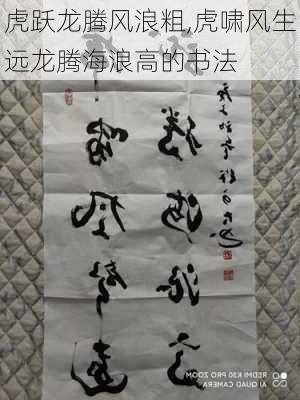 虎跃龙腾风浪粗,虎啸风生
远龙腾海浪高的书法
啸风声远
腾海浪高
REDMI K30 PRO ZOOM
AI QUAD CAMERA